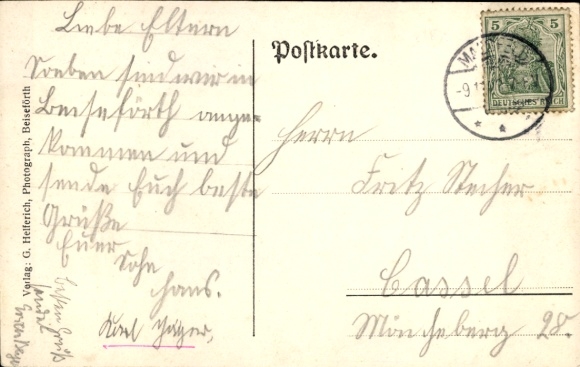 Liebe Eltern
Soeben sind wir in
Beiseförth ange-
kommen und
sende Euch beste
Grüße
Euer
Sohn
Hans.
Karl Jäger,
besten Gruß
sendet
Verlag: G. Helferich, Photograph, Beiseförth
Postkarte.
5 5
DEUTSCHES REICH
-9.1
Herrn
Fritz Stecher
Cassel
Möncheberg 28.